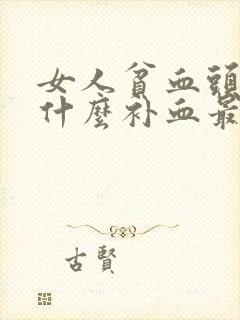 女人貧血頭
什麼补血最
古賢